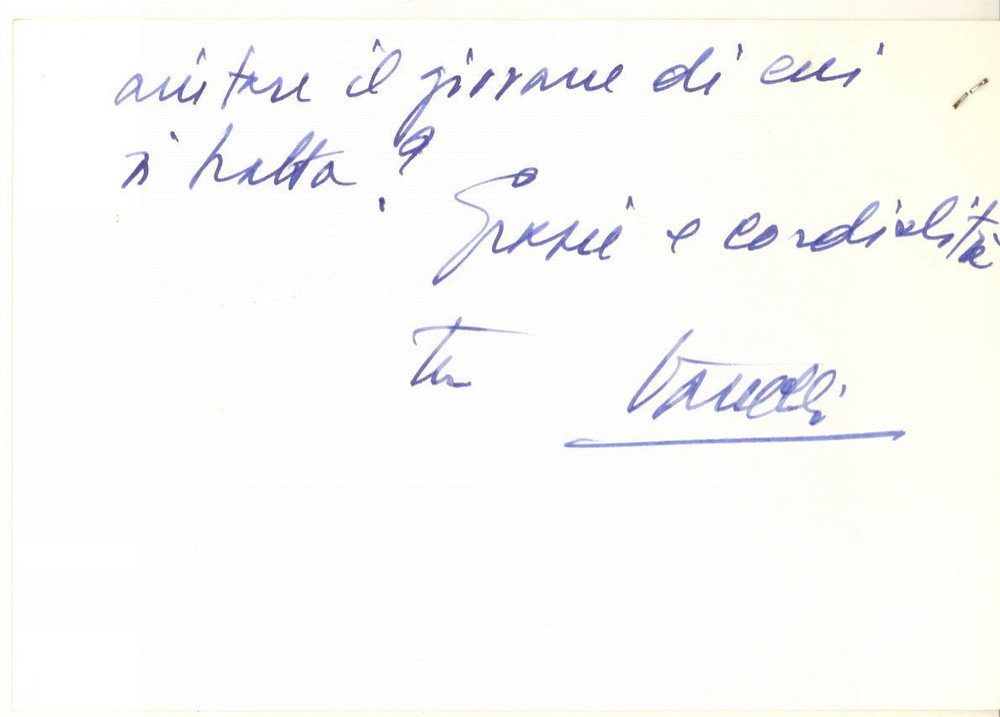 aiutare il giovane di cui
si tratta?
Grazie e cordialità
tuo Vanelli